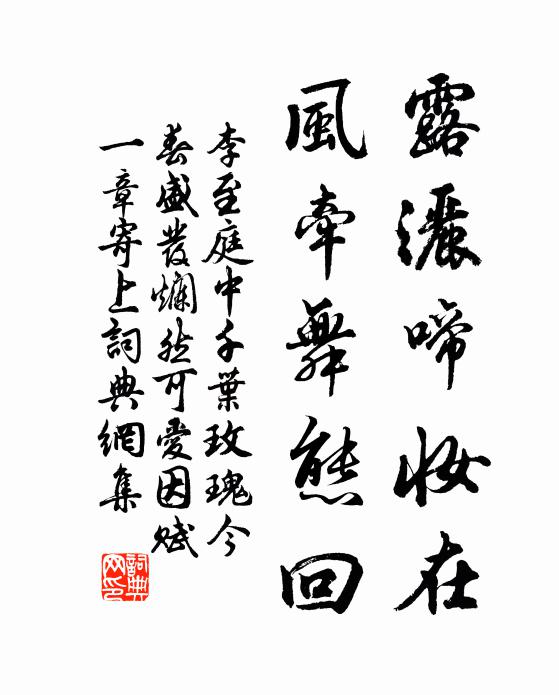 露灑啼妝在
風牽舞態回
李至庭中千葉玫瑰今
春盛發爛然可愛因賦
一章寄上詞典網集
詞典
网印